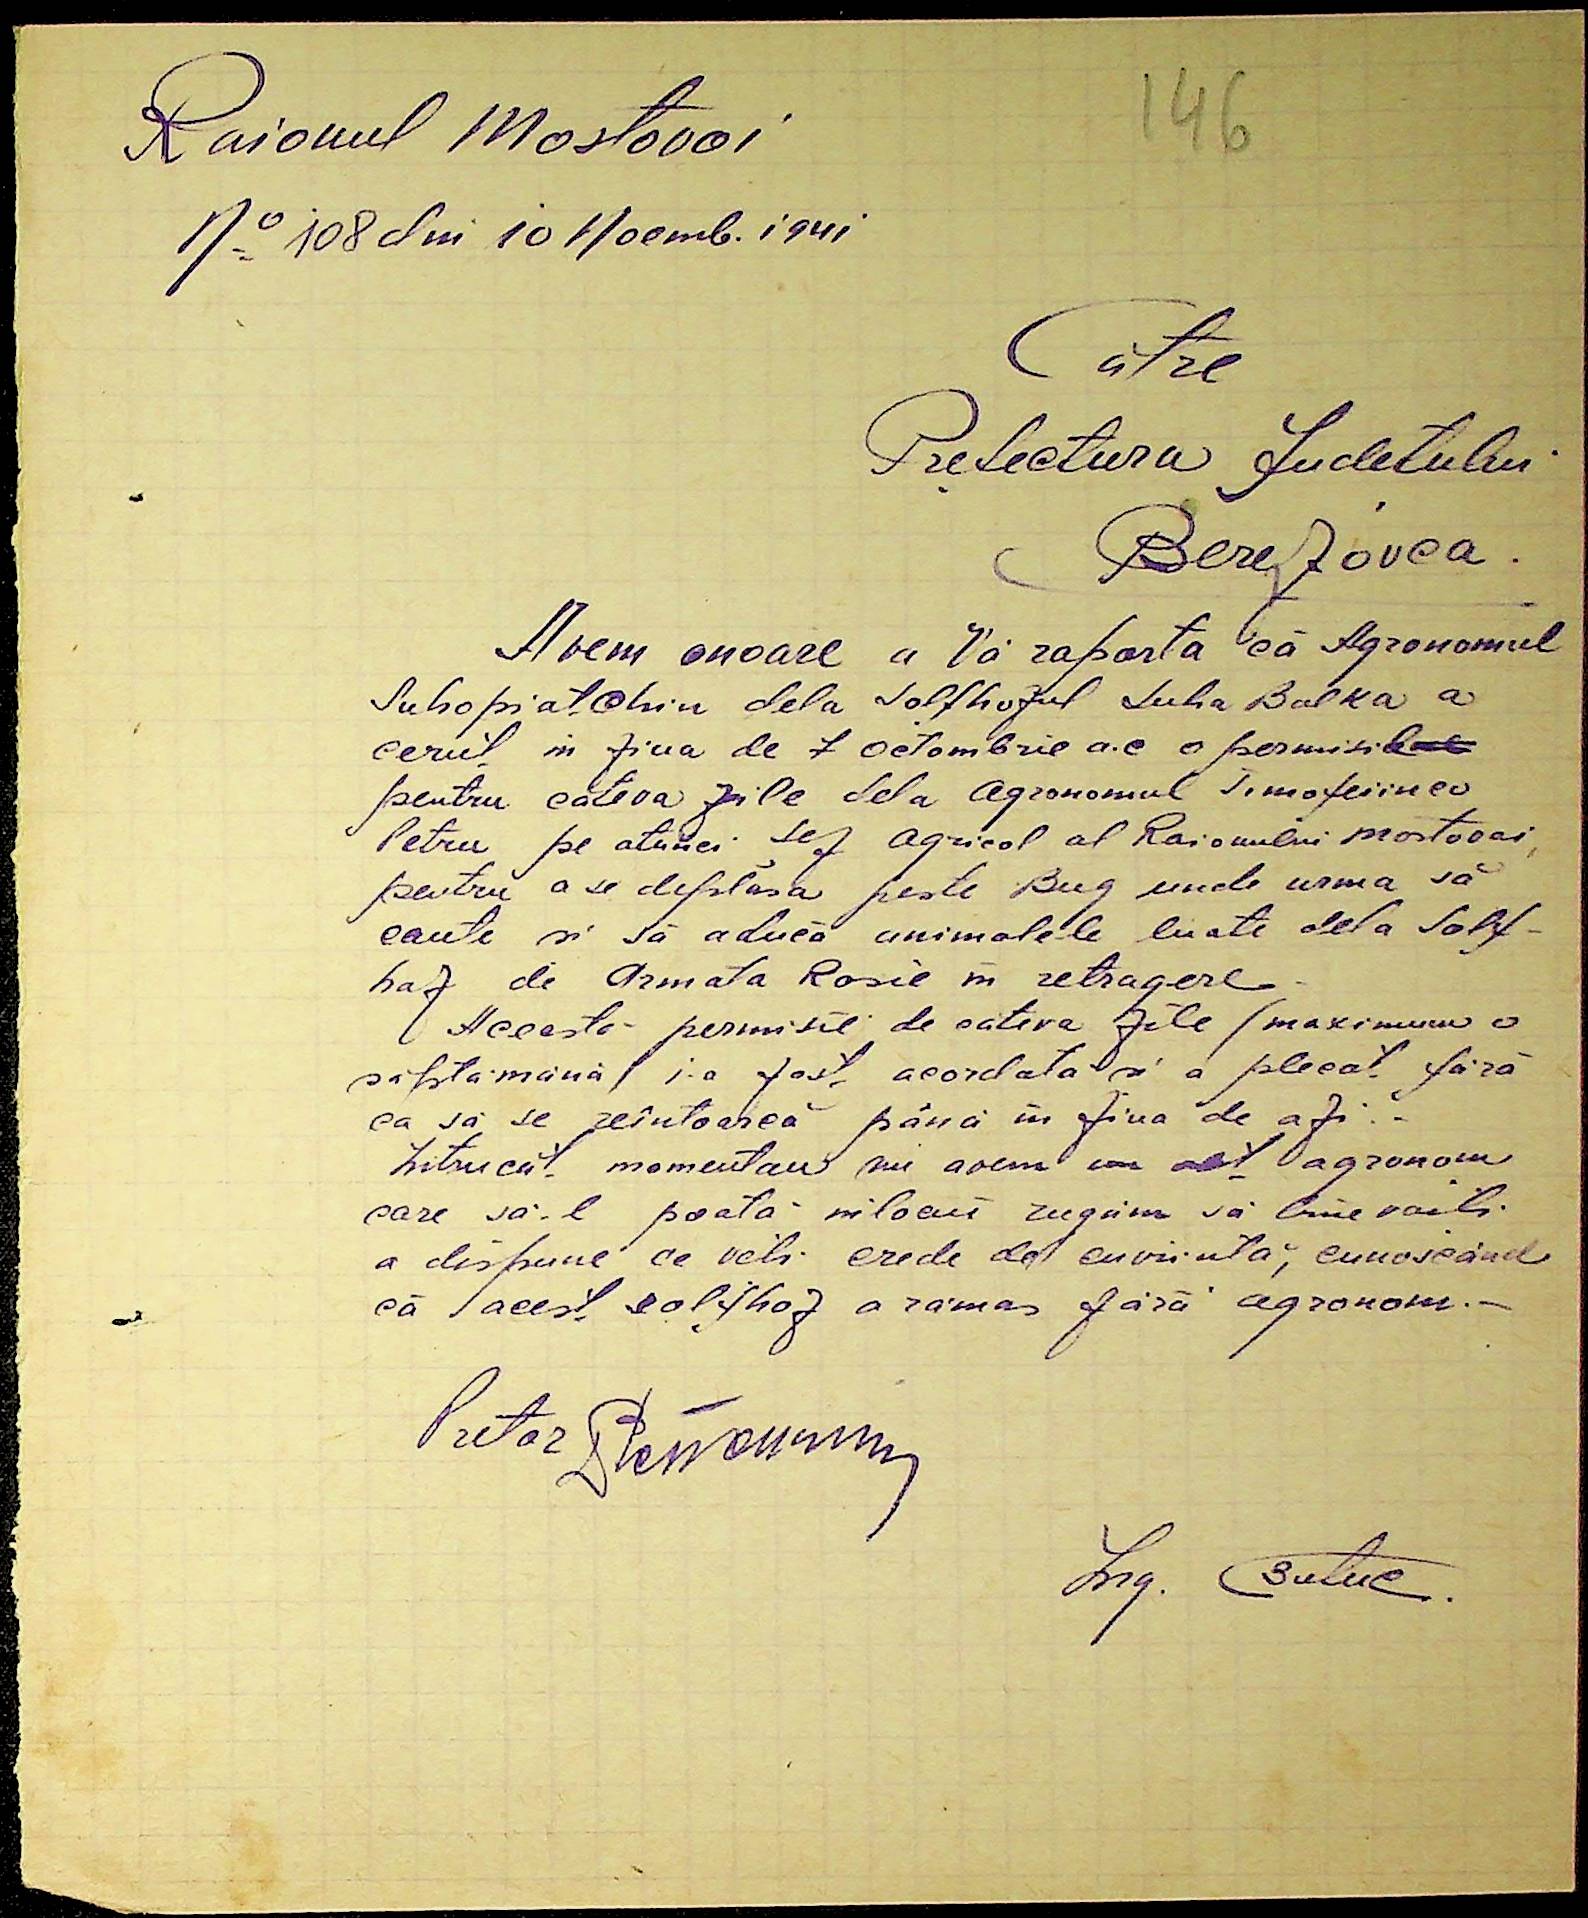 146
Raionul Mostovoi
No 108 din 10 Noemb. 1941
Către
Prefectura Judetului
Berezovca.
Avem onoare a Vă raporta că Agronomul
Suhopiatchin dela Solfhozul Suha Balka a
cerut in ziua de 7 octombrie a.c o permisi
pentru câteva zile dela Agronomul Timofeiinco
Petru pe atunci sef agricol al Raionului Mostovoi,
pentru a se deplasa peste Bug unde urma să
caute si să aducă animalele luate dela Solf-
hoz de Armata Rosie in retragere.
Aceastā permisie de câteva zile (maximum o
săptămână) i-a fost acordată si a plecat fără
ca să se reîntoarcă până in ziua de azi.-
Intrucât momentan nu avem un alt agronom
care să-l poată inlocui rugăm să binevoiti
a dispune ce veti crede de cuviintă, cunoscând
că acest solfhoz a rămas fără agronom.-
Pretor
Ing.